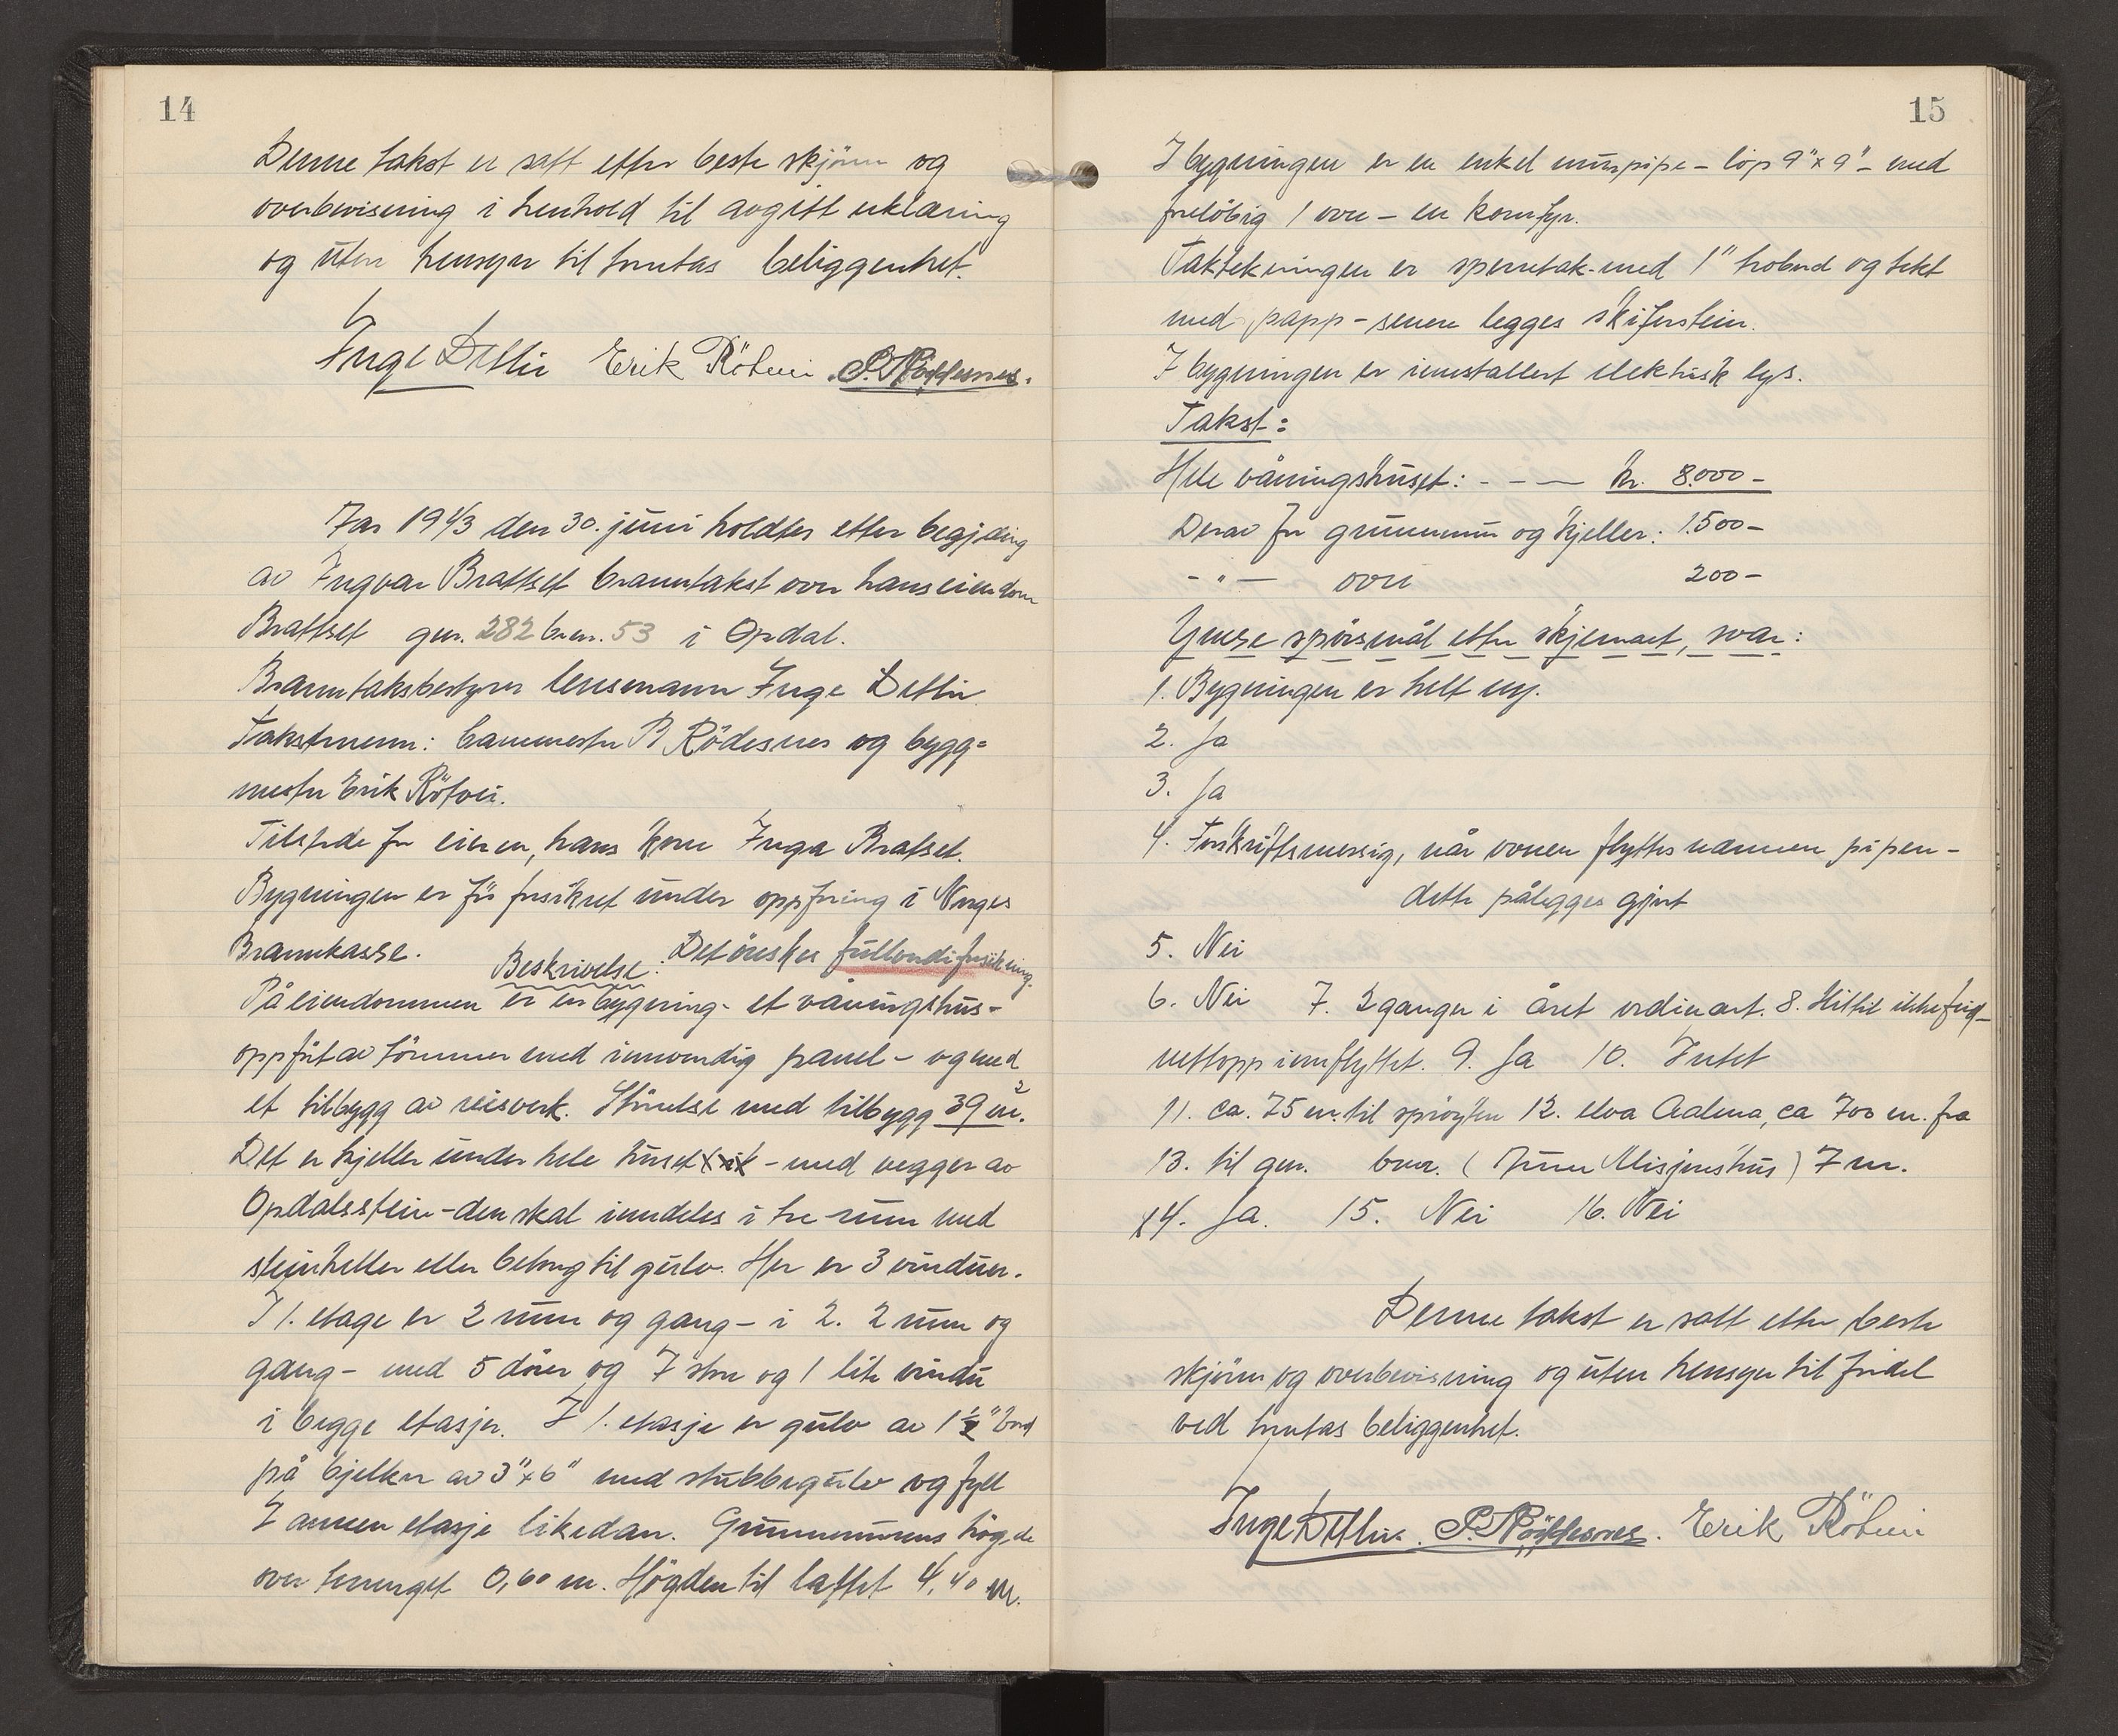 14
Denne takst er satt etter beste skjönn og
overbevisning i henhold til avgitt erklæring
og uten hensyn til tomtas beliggenhet.
Inge Erik Rötvei P. Rödesnes.
År 1943 den 30. juni holdtes etter begjæring
av Ingvar Brattset branntakst over hans eiendom
Brattset gnr. 282 bnr. 53 i Opdal.
Branntakstbestyrer lensmann Inge
Takstmenn: banemester P Rödesnes og bygg=
mester Erik Rötvei.
Tilstede for eieren, hans kone Inga Bratset.
Bygningen er för forsikret under oppföring i Norges
Brannkasse. Beskrivelse: Det önskes fullverdiforsikring.
På eiendommen er en bygning - et våningshus -
oppfört av tömmer med innvendig panel - og med
et tilbygg av reisverk. Störrelse med tilbygg 39 m².
Det er kjeller under hele huset - med vegger av
Opdalsstein - den skal inndeles i tre rum med
steinheller eller betong til gulv. Her er 3 vinduer.
I 1. etage er 2 rum og gang - i 2. 2 rum og
gang - med 5 dörer og 7 store og 1 lite vindu
i begge etasjer. I 1. etasje er gulv av 1 ½" bord
på bjelker av 3"x6" med stubbegulv og fyll
I annen etasje likedan. Grunnmurens högde
over terrenget 0,60 m. Högden til loftet 4,40 m.
15
I bygningen er en enkel murpipe - löp 9"x9" - med
forelöbig 1 ovn - en komfyr.
Taktekningen er sperretak - med 1" trobord og tekt
med papp - senere legges skiferstein.
I bygningen er innstallert elektrisk lys.
Takst:
Hele våningshuset: - - — kr. 8.000 -
Derav for grunnmur og kjeller: 1.500 -
- " — ovn 200 -
Ymse spörsmål etter skjemaet, svar:
1. Bygningen er helt ny.
2. Ja
3. Ja
4. Forskriftsmessig, når ovnen flyttes nærmere pipen -
dette pålegges gjort
5. Nei
6. Nei 7. 2 ganger i året ordinært. 8. Hittil ikke feid -
nettopp innflyttet. 9. Ja 10. Intet
11. ca. 75 m. til spröyten 12. elva Aalma, ca 700 m. fra
13. til gnr. bnr. (Misjonshus) 7 m.
14. Ja. 15. Nei 16. Nei
Denne takst er satt etter beste
skjönn og overbevisning og uten hensyn til fordel
ved tomtas beliggenhet.
Inge P. Rödesnes. Erik Rötvei